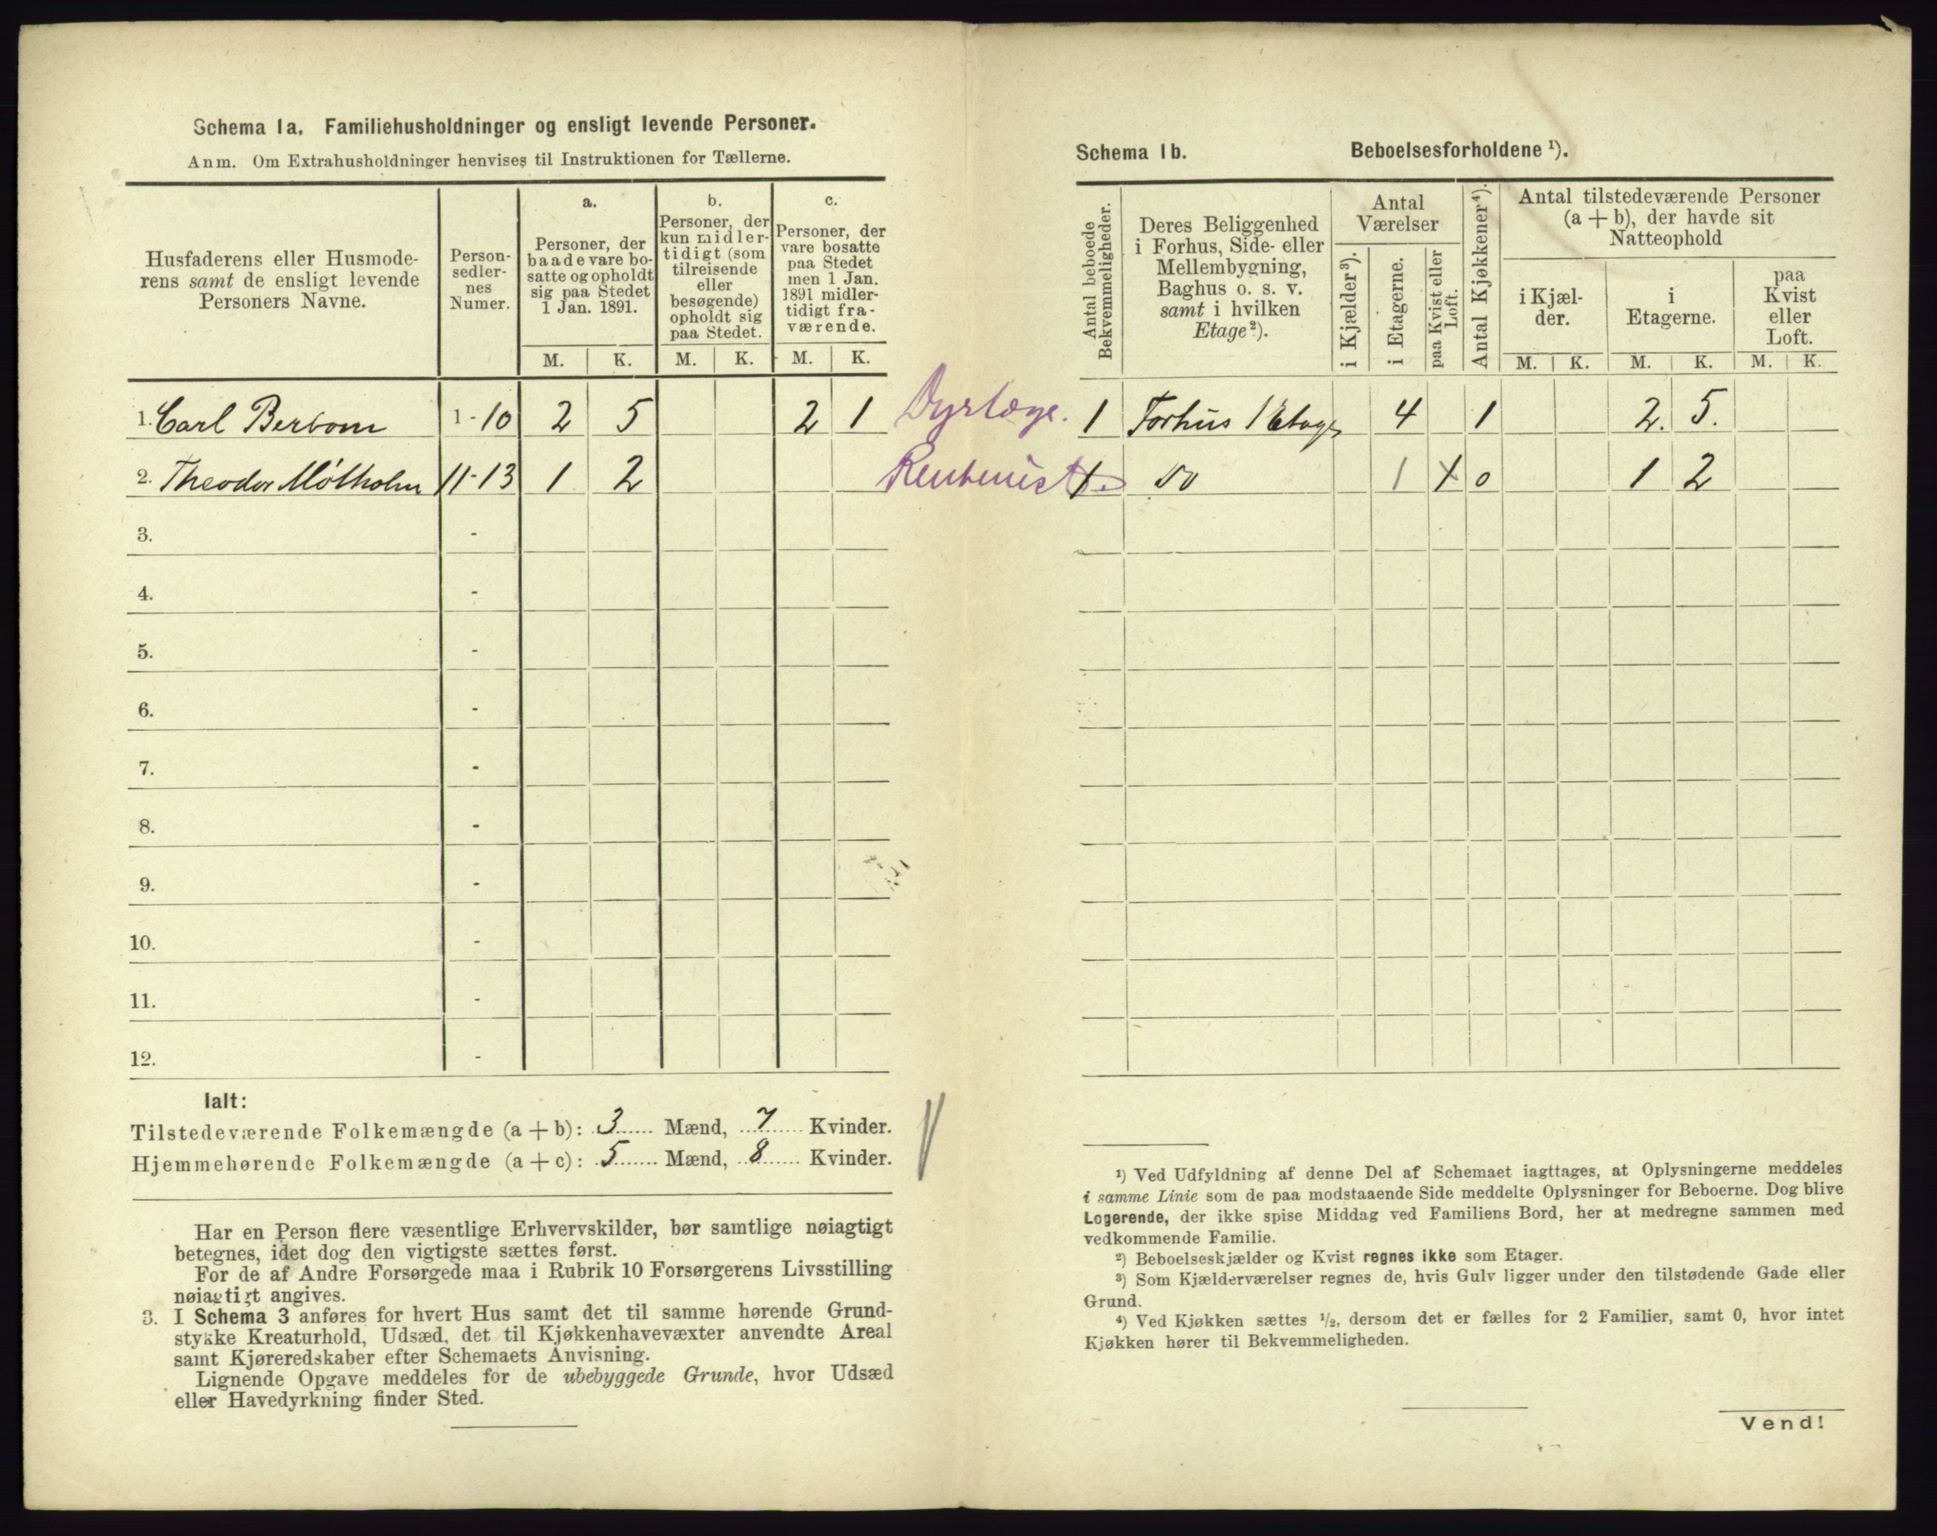 Schema 1a. Familiehusholdninger og ensligt levende Personer.
Anm. Om Extrahusholdninger henvises til Instruktionen for Tællerne.
Husfaderens eller Husmode-
rens samt de ensligt levende
Personers Navne.
Person-
sedler-
nes
Numer.
a.
Personer, der
baade vare bo-
satte og opholdt
sig paa Stedet
1 Jan. 1891.
b.
Personer, der
kun midler-
tidigt (som
tilreisende
eller
besøgende)
opholdt sig
paa Stedet.
c.
Personer, der
vare bosatte
paa Stedet
men 1 Jan.
1891 midler-
tidigt fra-
værende.
M. K. M. K. M. K.
1. Carl Berbom 1-10 2 5 2 1 Dyrlæge.
2. Theodor Møltholm 11-13 1 2 Rentenist.
3. -
4. -
5. -
6. -
7. -
8. -
9. -
10. -
11. -
12. -
Ialt:
Tilstedeværende Folkemængde (a + b): 3 Mænd, 7 Kvinder.
Hjemmehørende Folkemængde (a + c): 5 Mænd, 8 Kvinder.
Har en Person flere væsentlige Erhvervskilder, bør samtlige nøiagtigt
betegnes, idet dog den vigtigste sættes først.
For de af Andre Forsørgede maa i Rubrik 10 Forsørgerens Livsstilling
nøiagtigt angives.
3. I Schema 3 anføres for hvert Hus samt det til samme hørende Grund-
stykke Kreaturhold, Udsæd, det til Kjøkkenhavevæxter anvendte Areal
samt Kjøreredskaber efter Schemaets Anvisning.
Lignende Opgave meddeles for de ubebyggede Grunde, hvor Udsæd
eller Havedyrkning finder Sted.
Schema 1b. Beboelsesforholdene ¹).
Antal beboede
Bekvemmeligheder.
Deres Beliggenhed
i Forhus, Side- eller
Mellembygning,
Baghus o. s. v.
samt i hvilken
Etage²).
Antal
Værelser
i Kjælder³).
i Etagerne.
paa Kvist eller
Loft.
Antal Kjøkkener⁴).
Antal tilstedeværende Personer
(a + b), der havde sit
Natteophold
i Kjæl-
der.
i
Etagerne.
paa
Kvist
eller
Loft.
M. K. M. K. M. K.
1 Forhus 1 Etage 4 1 2. 5.
1 do 1 1 0 1 2
¹) Ved Udfyldning af denne Del af Schemaet iagttages, at Oplysningerne meddeles
i samme Linie som de paa modstaaende Side meddelte Oplysninger for Beboerne. Dog blive
Logerende, der ikke spise Middag ved Familiens Bord, her at medregne sammen med
vedkommende Familie.
²) Beboelseskjælder og Kvist regnes ikke som Etager.
³) Som Kjælderværelser regnes de, hvis Gulv ligger under den tilstødende Gade eller
Grund.
⁴) Ved Kjøkken sættes ½, dersom det er fælles for 2 Familier, samt 0, hvor intet
Kjøkken hører til Bekvemmeligheden.
Vend!